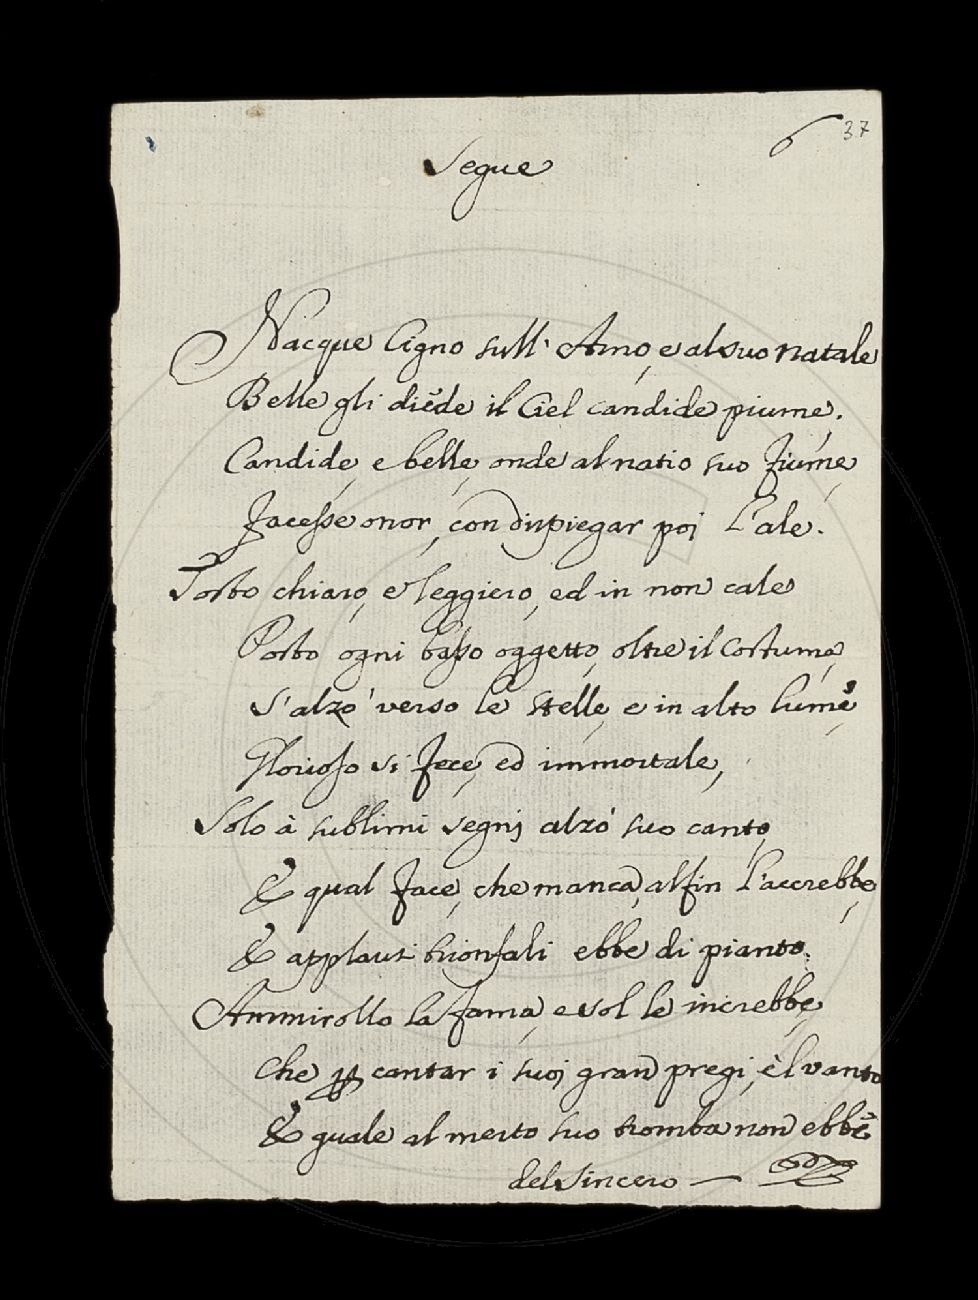 37
6
Segue
Nacque Cigno sull' Arno, e al suo natale
Belle gli diede il Ciel candide piume.
Candide, e belle, onde al natio suo fiume,
Facesse onor, con dispiegar poi l'ale.
Tosto chiaro, e leggiero, ed in non cale
Posto ogni basso oggetto, oltre il costume,
S'alzò verso le stelle, e in alto lume,
Glorioso si fece, ed immortale,
Solo à sublimi segni alzò suo canto,
E qual face, che manca, alfin l'accrebbe,
E applausi trionfali ebbe di pianto.
Ammirollo la fama, e sol le increbbe,
Che p cantar i suoi gran pregi, è l vanto
E quale al merto suo tromba non ebbe
del Sincero